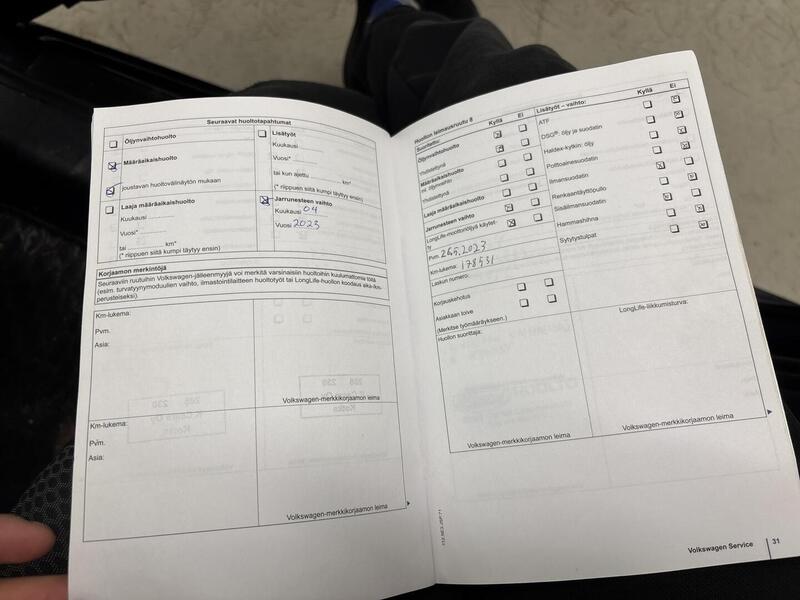 Seuraavat huoltotapahtumat
Öljynvaihtohuolto
Määräaikaishuolto
joustavan huoltovälinäytön mukaan
Laaja määräaikaishuolto
Kuukausi
Vuosi
tai km*
(* riippuen siitä kumpi täytyy ensin)
Lisätyöt
Kuukausi
Vuosi*
tai kun ajettu km*
(* riippuen siitä kumpi täytyy ensin)
Jarrunesteen vaihto
Kuukausi 04
Vuosi 2023
Korjaamon merkintöjä
Seuraaviin ruutuihin Volkswagen-jälleenmyyjä voi merkitä varsinaisiin huoltoihin kuulumattomia töitä
(esim. turvatyynymoduulien vaihto, ilmastointilaitteen huoltotyöt tai LongLife-huollon koodaus aika-/km-
perusteiseksi).
Km-lukema:
Pvm.
Asia:
Volkswagen-merkkikorjaamon leima
Km-lukema:
Pvm.
Asia:
Volkswagen-merkkikorjaamon leima
Huollon leimausruutu 8
Suoritettu: Kyllä Ei
Öljynvaihtohuolto
Yhdistettynä
Määräaikaishuolto
ml. öljynvaihdon
Yhdistettynä
Laaja määräaikaishuolto
Jarrunesteen vaihto
LongLife-moottoriöljyä käytet-
ty
Pvm. 26.5.2023
Km-lukema: 178531
Laskun numero:
Korjauskehotus
Asiakkaan toive
(Merkitse työmääräykseen.)
Lisätyöt – vaihto: Kyllä Ei
ATF
DSG®: öljy ja suodatin
Haldex-kytkin: öljy
Polttoainesuodatin
Ilmansuodatin
Renkaantäyttöpullo
Sisäilmansuodatin
Hammashihna
Sytytystulpat
Huollon suorittaja:
Volkswagen-merkkikorjaamon leima
LongLife-liikkumisturva:
Volkswagen-merkkikorjaamon leima
Volkswagen Service 31